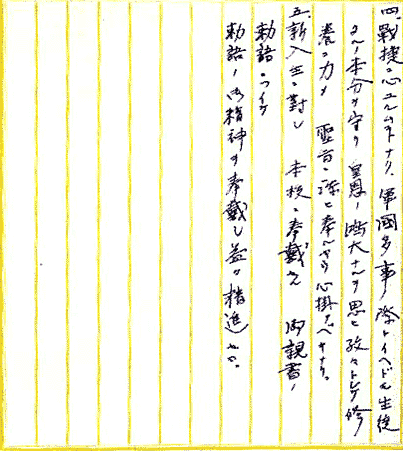 四、戰捷ニ心ユルムコトナク、軍國多事ノ際トイヘドモ生徒
タルノ本分ヲ守リ 皇恩ノ鴻大ナルヲ思ヒ孜々トシテ修
養ニ力メ 聖旨ニ添ヒ奉ルヤウ心掛クベキナリ。
五、新入生ニ對シ 本校ニ奉戴セル 御親書ノ
勅語ニツイテ
勅語ノ御精神ヲ奉戴シ益々精進セヨ。